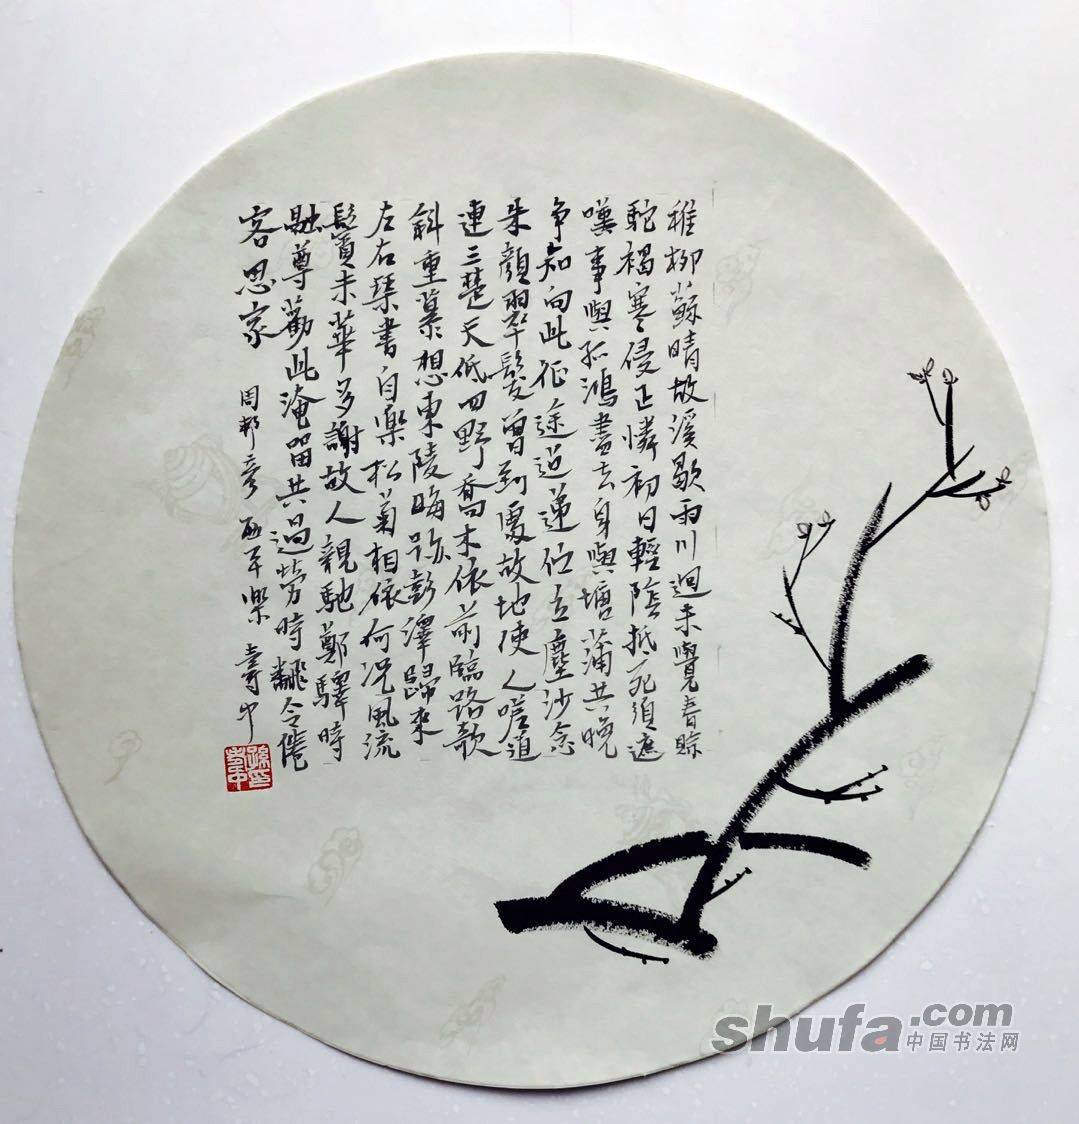 稚柳蘇晴故溪歇雨川迥未覺春賒
駝褐寒侵正憐初日輕陰抵死須遮
嘆事與孤鴻盡去身與塘蒲共晚
争知向此征途迢遞佇立塵沙念
朱顏翠髮曾到處故地使人嗟道
連三楚天低四野喬木依前臨路欹
斜重慕想東陵晦跡彭澤歸來
左右琴書自樂松菊相依何況風流
鬢未華多謝故人親馳鄭驛時
融尊勸此淹留共過芳時翻令倦
客思家 周邦彥 西平樂 壽中
shufa.com
中国书法网